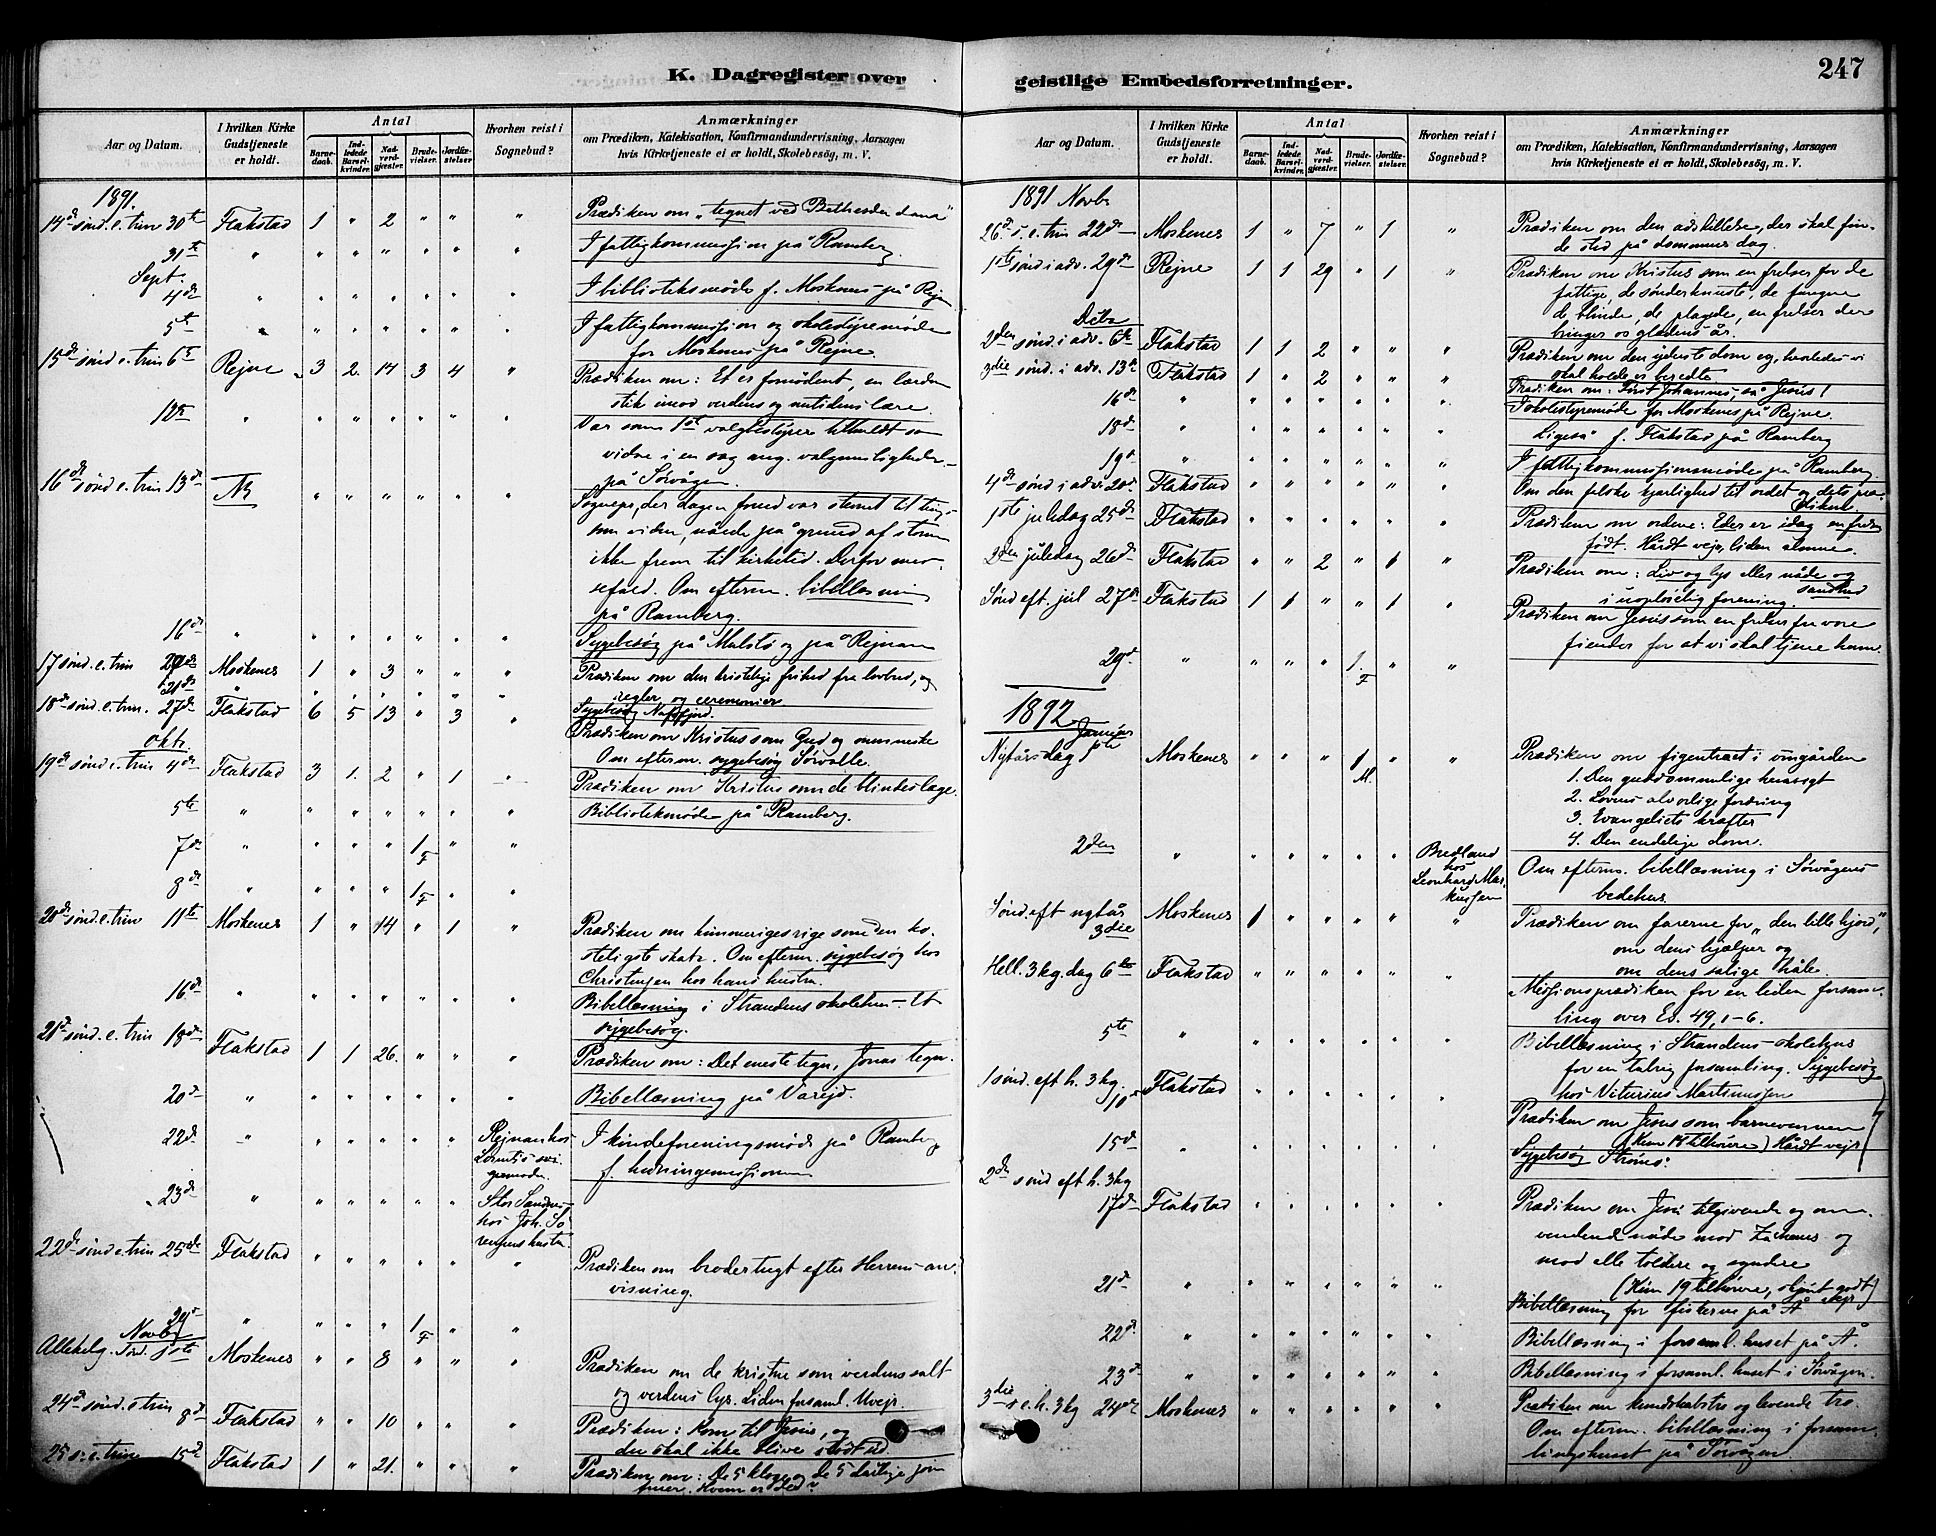 K. Dagregister over
geistlige Embedsforretninger.
247
Aar og Datum.
I hvilken Kirke Gudstjeneste er holdt.
Antal
Barnedaab.
Indledede Barselkvinder.
Nadverdgjester.
Brudevielser.
Jordfæstelser
Hvorhen reist i Sognebud?
Anmærkninger
om Prædiken, Katekisation, Konfirmandundervisning, Aarsagen
hvis Kirketjeneste ei er holdt, Skolebesøg, m. V.
1891.
14de sønd. e. trin 30te Flakstad 1 " 2 " " " Prædiken om "tegnet ved Bethesda dam"
31te " " " " " " " I fattigkommission på Ramberg.
Sept.
4de " " " " " " " I biblioteksmøde f. Moskenes på Rejne
5te " " " " " " " I fattigkommission og skolestyremøde
for Moskenes på Rejne.
15de sønd e. trin 6te Rejne 3 2. 17 3 4 " Prædiken om: Et er fornødent, en lærdom
stik imod verdens og nutidens lære.
12te " " " " " " Var som 1st valgbestyrer tilkaldt som
vidne i en sag ang. valgurolighederne
på Sörvågen.
16de sønd e. trin 13de NB " " " " " " Sognepr., der dagen forud var stevnet til tings
som vidne, nåede på grund af storm
ikke frem til kirketid. Derfor messefald. Om efterm. bibellæsning
på Ramberg.
16de " " " " " " " Sygebesøg på og på Rejnan
17 sønd. e. trin 20de Moskenes 1 " 3 " " " Prædiken om den kristelige frihed fra lovbud, og
regler og ceremonier
21de " " " " " " " Sygebesøg Napfjord.
18de sønd. e. trin. 27de Flakstad 6 5 13 " 3 " Prædiken om Kristus som Gud og menneske
Om efterm. sygebesøg Sörvalle.
Okt.
19de sønd e. trin 4de Flakstad 3 1. 2 " 1 " Prædiken om Kristus som de blindes læge.
5te " " " " " " " Biblioteksmøde på Ramberg.
7de " " " " 1 F " "
8de " " " " 1 F " "
20de sønd. e. trin 11te Moskenes 1 " 14 " 1 " Prædiken om himmeriges rige som den kosteligste skat. Om efterm. sygebesøg hos
hos hans hustru.
16de " " " " " " " Bibellæsning i Strandens skolehus – Et
sygebesøg.
21de sønd. e. trin 18de Flakstad 1 1 26. " " " Prædiken om: Det eneste tegn, Jonas tegn.
20de " " " " " " " Bibellæsning på Vareid.
22de " " " " " " Rejnan hos svigermoder. I kvindeforeningsmøde på Ramberg
f. hedningemissionen
23de " " " " " " Stor Sandnes hos Joh. Sörensens hustru.
22de sønd e. trin 25de Flakstad " " " " " " Prædiken om brodertugt efter Herrens anvisning.
29de " " " " 1 F " "
Novbr
Allehelg. sønd. 1ste Moskenes " " 8 " " " Prædiken om de kristne som verdens salt
og verdens lys. Liden forsaml. Uvejr.
24de sønd. e trin 8de Flakstad " " 10 " " " Prædiken: Kom til Jesus, og
du skal ikke blive stödt ud.
25 s. e. trin 15de Flakstad 1 " 21. " " " Prædiken om: De 5 kloge og de 5 dårlige jomfruer. Hvem er du?
Aar og Datum.
I hvilken Kirke Gudstjeneste er holdt.
Antal
Barnedaab.
Indledede Barselkvinder.
Nadverdgjester.
Brudevielser.
Jordfæstelser.
Hvorhen reist i Sognebud?
Anmærkninger
om Prædiken, Katekisation, Konfirmandundervisning, Aarsagen
hvis Kirketjeneste ei er holdt, Skolebesøg, m. V.
1891 Novbr
26de s. e. trin 22de Moskenes 1 " 7 " 1 " Prædiken om den adskillelse, der skal finde sted på dommens dag.
1ste sønd i adv. 29de Rejne 1 1 29 " 1 " Prædiken om Kristus som en frelser for de
fattige, de sønderknuste, de fangne
de blinde, de plagede, en frelser der
bringer os glædens år.
Decbr
2den sønd. i adv. 6te Flakstad 1 1 2 " " " Prædiken om den yderste dom og, hvorledes vi
skal holde os beredte
3die sønd. i adv. 13de Flakstad 1 " 2 " " " Prædiken om: Först Johannes, så Jesus!
16de " " " " " " " I skolestyremøde for Moskenes på Rejne.
18de " " " " " " " Ligeså f. Flakstad på Ramberg
19de " " " " " " " I fattigkommissionsmøde på Ramberg
4de sønd i adv. 20de Flakstad " " " " " " Om den falske kjærlighed til ordet og dets prædikant
1ste juledag 25de Flakstad " " " " " " Prædiken om ordene: Eder er idag en frelser
født. Hårdt vejr, liden almue.
2den juledag 26de Flakstad " " 2 " 1 " Prædiken om: Liv og lys eller nåde og
sandhed
i uopløselig forening.
Sønd eft. jul 27de Flakstad 1 1 " " 1 " Prædiken om Jesus som en frelser fra vore
fiender for at vi skal tjene ham.
29de " " " " 1. F " "
1892
Januar
Nytårsdag 1ste Moskenes " " " 1 M. " " Prædiken om figentræet i vingården
1. Den guddommelige hensigt
2. Lovens alvorlige fordring
3. Evangeliets kræfter
4. Den endelige dom.
2den " " " " " " Bredland hos Leonhard Markussen Om efterm. bibellæsning i Sörvågens
bedehus.
Sønd. eft nytår 3die Moskenes 1 " " " " " Prædiken om farerne for "den lille hjord,"
om dens hjælper og
om dens salige håb.
Hell. 3 kg. dag 6te Flakstad " " " " " " Missionsprædiken for en liden forsamling over Es. 49, 1–6.
5te " " " " " " " Bibellæsning i Strandens skolehus
for en talrig forsamling. Sygebesøg
hos Martinussen
1 sønd. eft h. 3 kg. 10de Flakstad " " " " " " Prædiken om Jesus som barnevennen
(Kun 18 tilhörere) Hårdt vejr
15de " " " " " " " Sygebesøg Ströms:
2de sönd eft h. 3 kg
17de Flakstad " " " " " " Prædiken om Jesu tilgivende og omvendende nåde mod Zachæus og
mod alle toldere og syndere
(Kun 19 tilhörere, skjönt godt vejr)
21de " " " " " " " Bibellæsning for fiskerne på Å
22de " " " " " " " Bibellæsning i forsaml. huset på Å.
23de " " " " " " " Bibellæsning i forsaml. huset i Sörvågen.
3die s. e. h. 3 kg 24de Moskenes " " " " " " Prædiken om kundskabstro og levende tro.
Om efterm. bibellæsning i forsamlingshuset på Sörvågen.